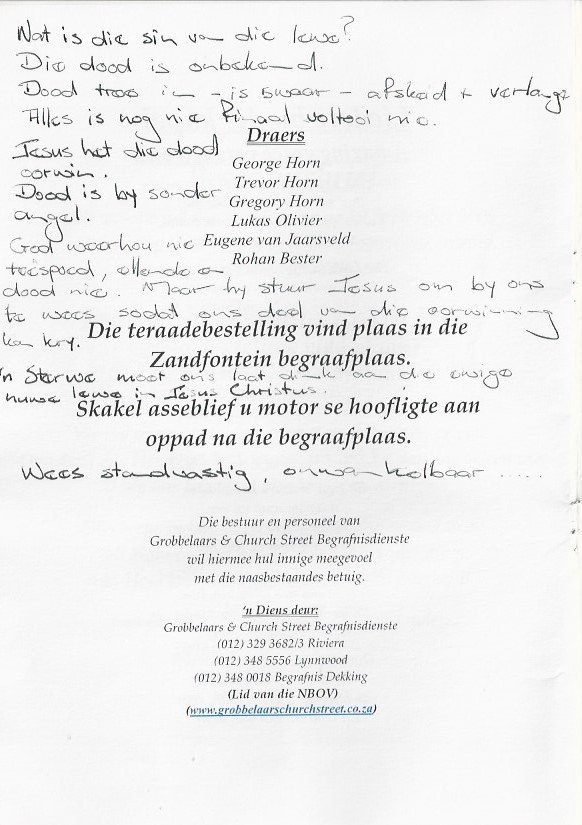 Wat is die sin van die lewe?
Die dood is onbekend.
Dood tree in - is swaar - afskeid + verlange
Alles is nog nie finaal voltooi nie.
Draers
Jesus het die dood
oorwin.
George Horn
Trevor Horn
Dood is by sonder
angel.
Gregory Horn
Lukas Olivier
God weerhou nie
Eugene van Jaarsveld
teëspoed, ellende en
Rohan Bester
dood nie. Maar hy stuur Jesus om by ons
te wees sodat ons deel van die oorwinning
kan kry.
Die teraadebestelling vind plaas in die
Zandfontein begraafplaas.
'n Sterwe moet ons laat dink aan die ewige
nuwe lewe in Jesus Christus.
Skakel asseblief u motor se hoofligte aan
oppad na die begraafplaas.
Wees standvastig, onwankelbaar .....
Die bestuur en personeel van
Grobbelaars & Church Street Begrafnisdienste
wil hiermee hul innige meegevoel
met die naasbestaandes betuig.
'n Diens deur:
Grobbelaars & Church Street Begrafnisdienste
(012) 329 3682/3 Riviera
(012) 348 5556 Lynnwood
(012) 348 0018 Begrafnis Dekking
(Lid van die NBOV)
(www.grobbelaarschurchstreet.co.za)